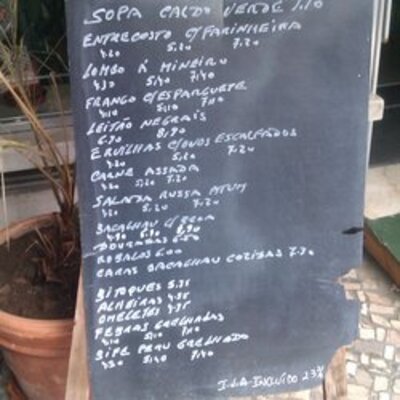 SOPA CALDO VERDE 1.10
ENTRECOSTO C/FARINHEIRA
4.20 5.20 7.20
LOMBO À MINEIRO
4.30 5.40 7.40
FRANGO C/ESPARGUETE
4.10 5.10 7.10
LEITÃO NEGRAIS
6.90 8.90
ERVILHAS C/OVOS ESCALFADOS
4.20 5.20 7.20
CARNE ASSADA
5.20 7.20
SALADA RUSSA ATUM
5.20 7.20
BACALHAU C/
4.90 5.90 8.90
DOURADAS 6.50
ROBALOS 6.00
CARAS BACALHAU COZIDAS 7.30
BITOQUES 5.75
ALHEIRAS 4.95
OMELETES 4.75
FEBRAS GRELHADAS
5.10 7.10
BIFE PERU GRELHADO
5.40 7.40
I.V.A INCLUIDO 23%